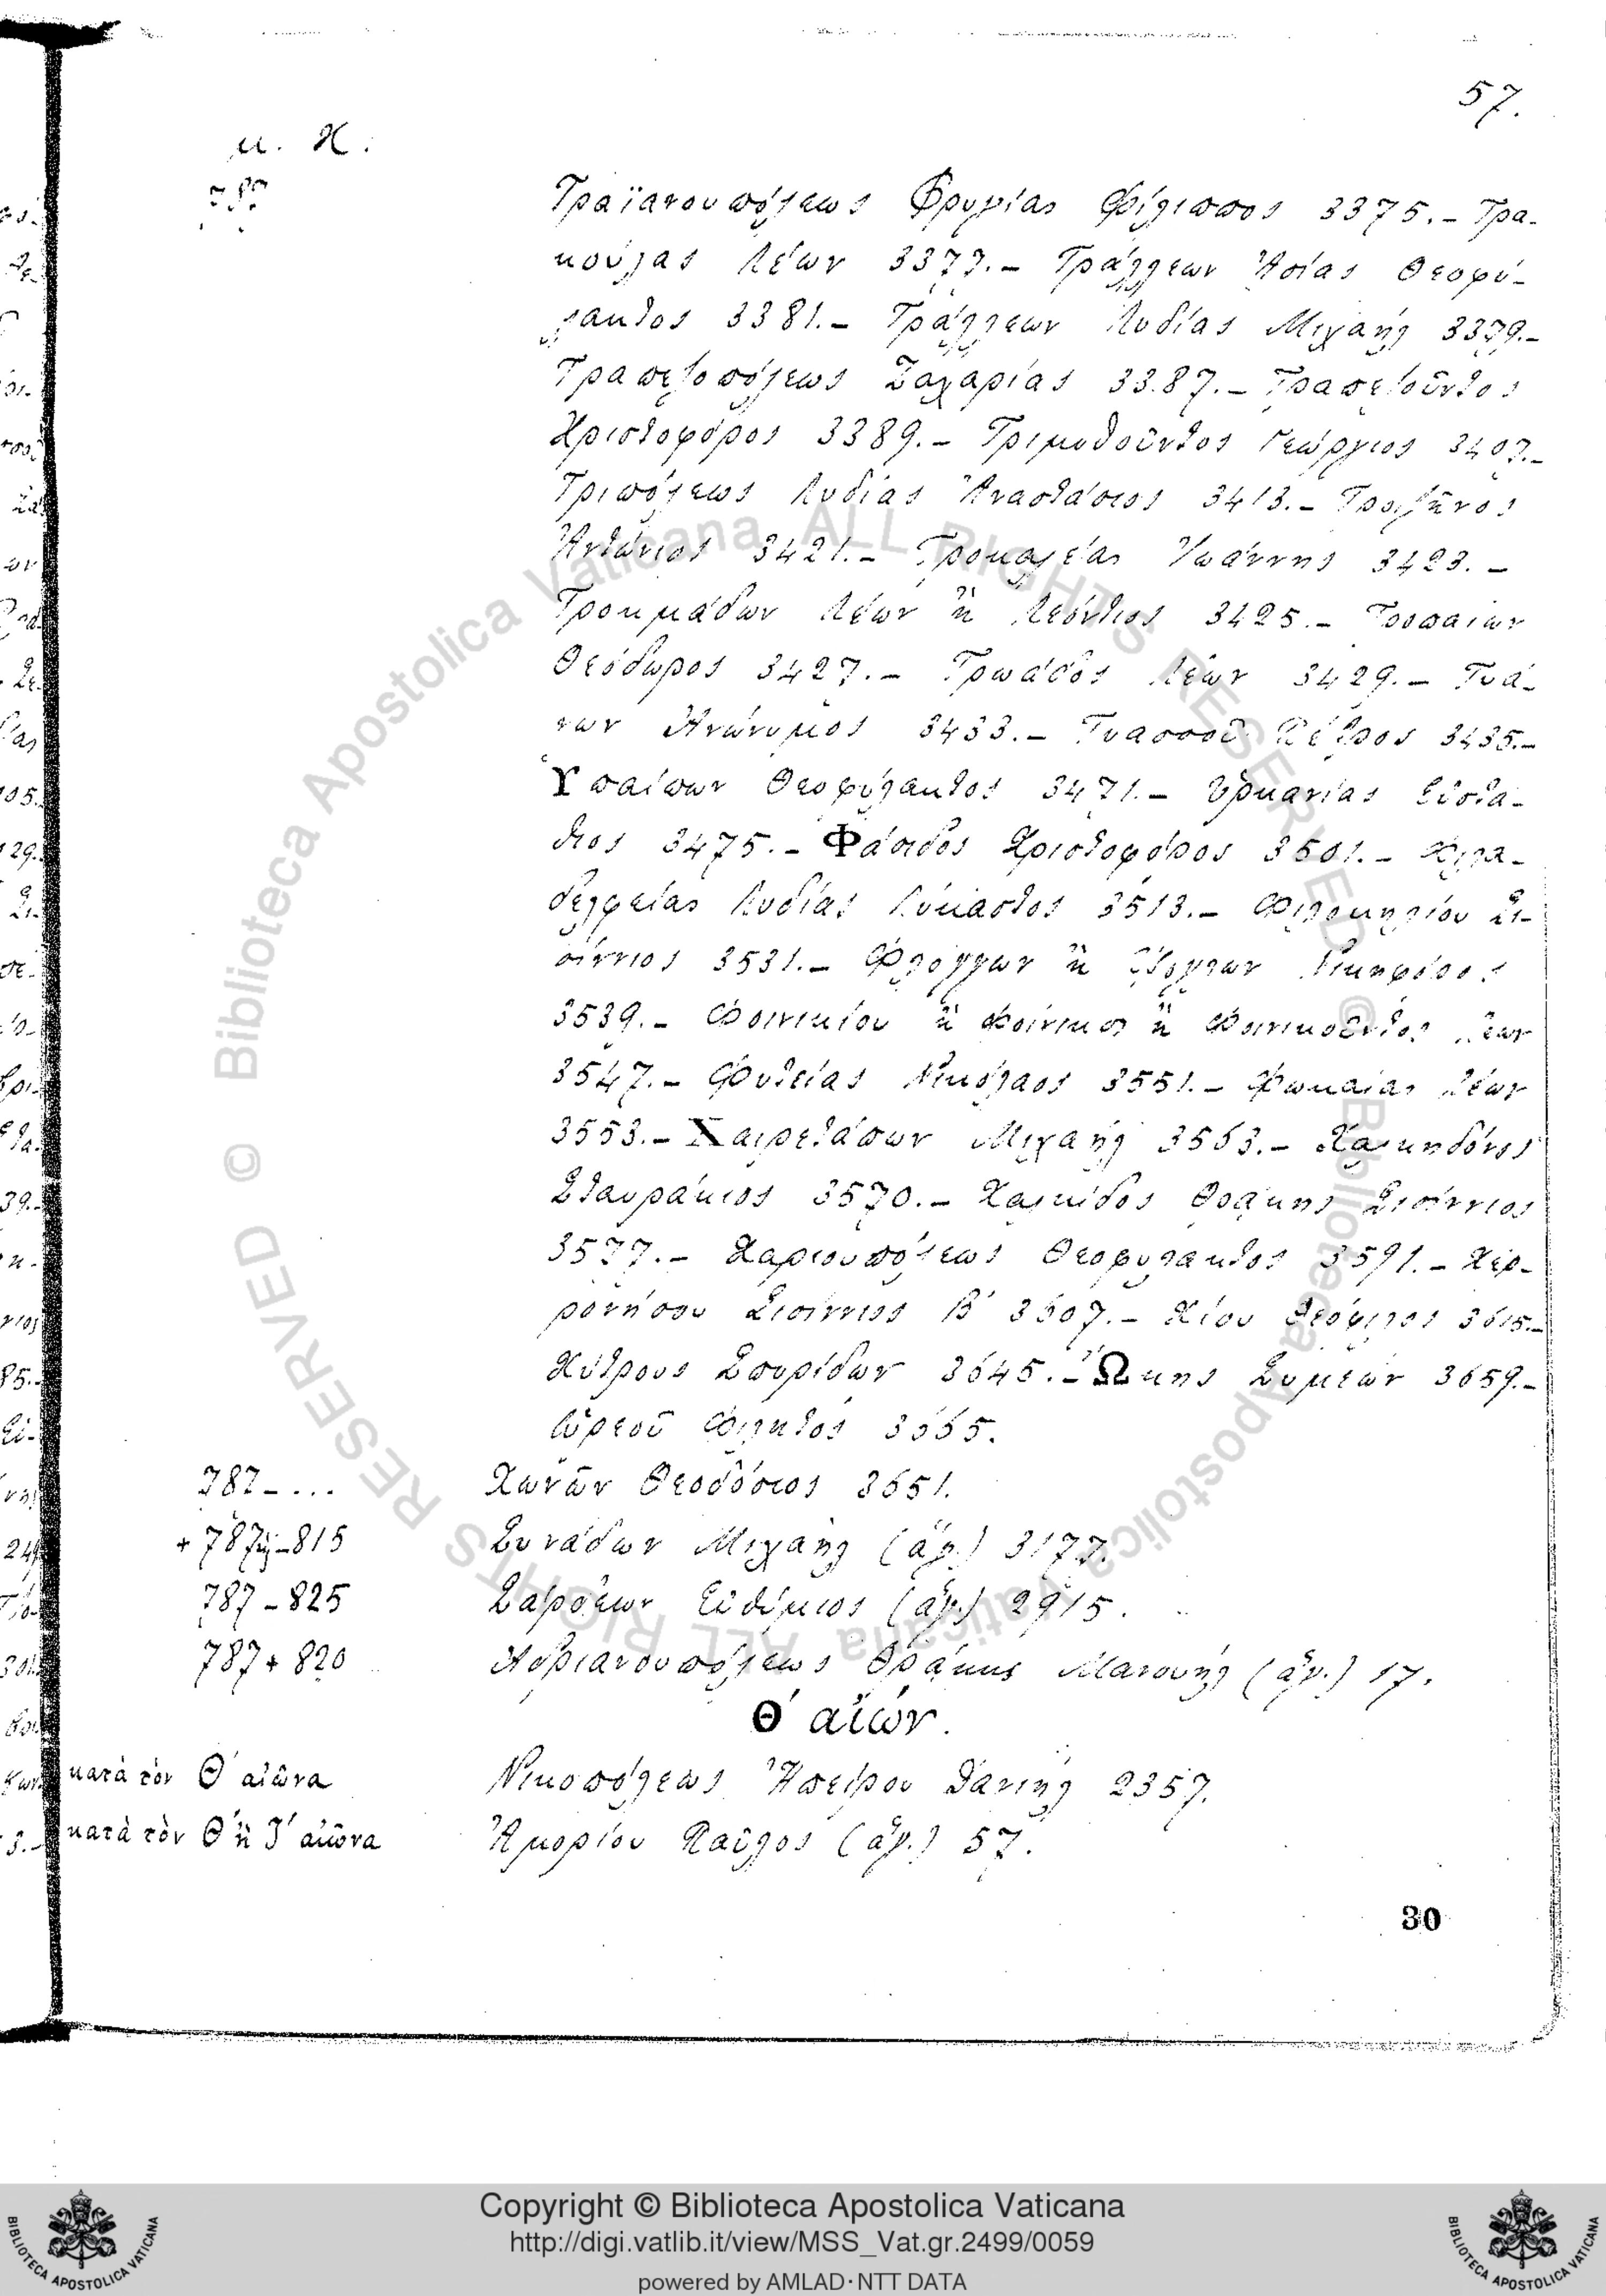 57.
μ. Χ.
787
Τραϊανουπόλεως Φρυγίας Φίλιππος 3375.– Τρα-
κούλας Λέων 3377.– Τράλλεων Ἀσίας Θεοφύ-
λακτος 3381.– Τράλλεων Λυδίας Μιχαήλ 3379.–
Τραπεζοπόλεως Ζαχαρίας 3387.– Τραπεζοῦντος
Χριστοφόρος 3389.– Τριμυθοῦντος Γεώργιος 3407.–
Τριπόλεως Λυδίας Ἀναστάσιος 3413.– Τροιζῆνος
Ἀντώνιος 3421.– Τροκαλέας Ἰωάννης 3423.–
Τροκμάδων Λέων ἢ Λεόντιος 3425.– Τροπαίων
Θεόδωρος 3427.– Τρωάδος Λέων 3429.– Τυά-
νων Ἀνώνυμος 3433.– Τυασσοῦ Πέτρος 3435.–
Ὑπαίπων Θεοφύλακτος 3471.– Ὑρκανίας Εὐστά-
θιος 3475.– Φάσιδος Χριστοφόρος 3501.– Φιλα-
δελφείας Λυδίας Λύκαστος 3513.– Φιλομηλίου Σι-
σίννιος 3531.– Φλόγγων ἢ Νικηφόρος
3539.– Φοινικίου ἢ Φοίνικος ἢ Φοινικοῦντος Λέων
3547.– Φυτείας Νικόλαος 3551.– Φωκαίας Λέων
3553.– Χαιρετάπων Μιχαήλ 3563.– Χαλκηδόνος
Σταυράκιος 3570.– Χαλκίδος Θρᾴκης Σισίννιος
3577.– Χαριουπόλεως Θεοφύλακτος 3591.– Χερ-
ρονήσου Σισίννιος Β΄ 3607.– Χίου Θεόφιλος 3615.–
Χύτρους Σπυρίδων 3645.– Ὤκης Συμεών 3659.–
Ὠρεοῦ Φιλητός 3665.
787–... Χωνῶν Θεοδόσιος 3651.
+ 787ἢ–815 Συνάδων Μιχαήλ (ἅγ.) 3177.
787–825 Σάρδεων Εὐθύμιος (ἅγ.) 2915.
787+820 Ἀδριανουπόλεως Θρᾴκης Μανουήλ (ἅγ.) 17.
Θ΄ αἰών.
κατὰ τὸν Θ΄ αἰῶνα Νικοπόλεως Ἠπείρου Δανιήλ 2357.
κατὰ τὸν Θ΄ ἢ Ι΄ αἰῶνα Ἀμορίου Παῦλος (ἅγ.) 57.
30
© Biblioteca Apostolica Vaticana ALL RIGHTS RESERVED
© Biblioteca Apostolica Vaticana ALL RIGHTS RESERVED
Copyright © Biblioteca Apostolica Vaticana
http://digi.vatlib.it/view/MSS_Vat.gr.2499/0059
powered by AMLAD·NTT DATA
BIBLIOTECA APOSTOLICA VATICANA
BIBLIOTECA APOSTOLICA VATICANA